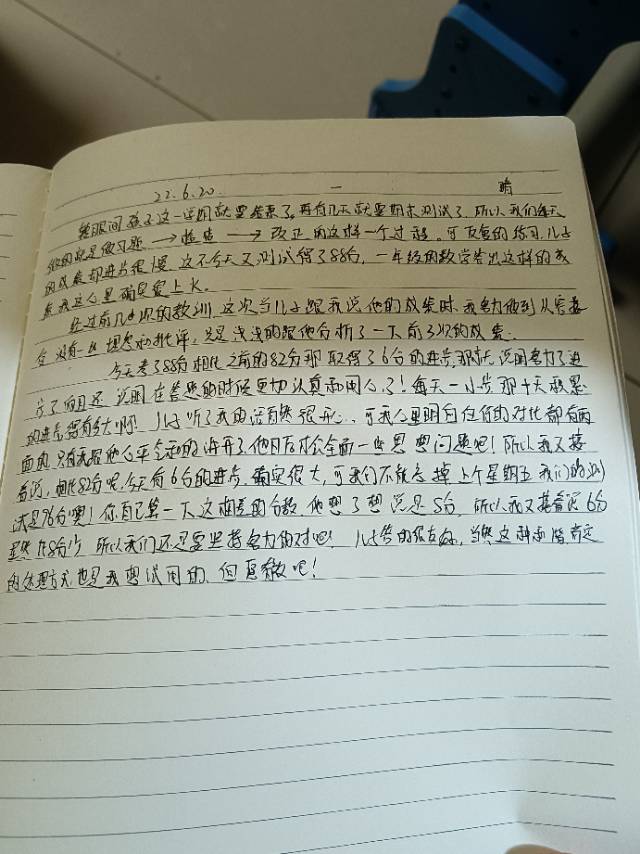 22.6.20. 一 晴
转眼间孩子这一学期就要结束了。再有几天就要期末测试了，所以我们每天
做的就是做习题 → 检查 → 改正的这样一个过程。可反复的练习，儿子
的成绩却进步很慢，这不今天又测试得了88分，一年级的数学答出这样的成
绩我这心里确实爱上火。
经过前几次的教训，这次当儿子跟我说他的成绩时，我努力做到从容接
受，没有一丝埋怨和批评，只是浅浅的跟他分析了一下前3次的成绩。
今天考了88分相比之前的82分那取得了6分的进步，那就说明努力了进
步了，而且还说明在答题的时候更加认真和用心了！每天一小步那十天积累
的进步得有多大啊！儿子听了我的话有些很开心，可我心里明白任何的对比都有两
面的，只有我跟他心平气和的讲开了，他日后才会全面一些思想问题吧！所以我又接
着说，相比82分呢，今天有6分的进步，确实很大，可我们不能忘掉上个星期五我们的测
试是96分噢！你自己算一下这相差的分数，他想了想说是8分，所以我又接着说6分
虽然比8分少，所以我们还是要坚持努力的对吧！儿子答的很有，当然这种和谐肯定
的处理方式也是我想试用的，但愿有效吧！